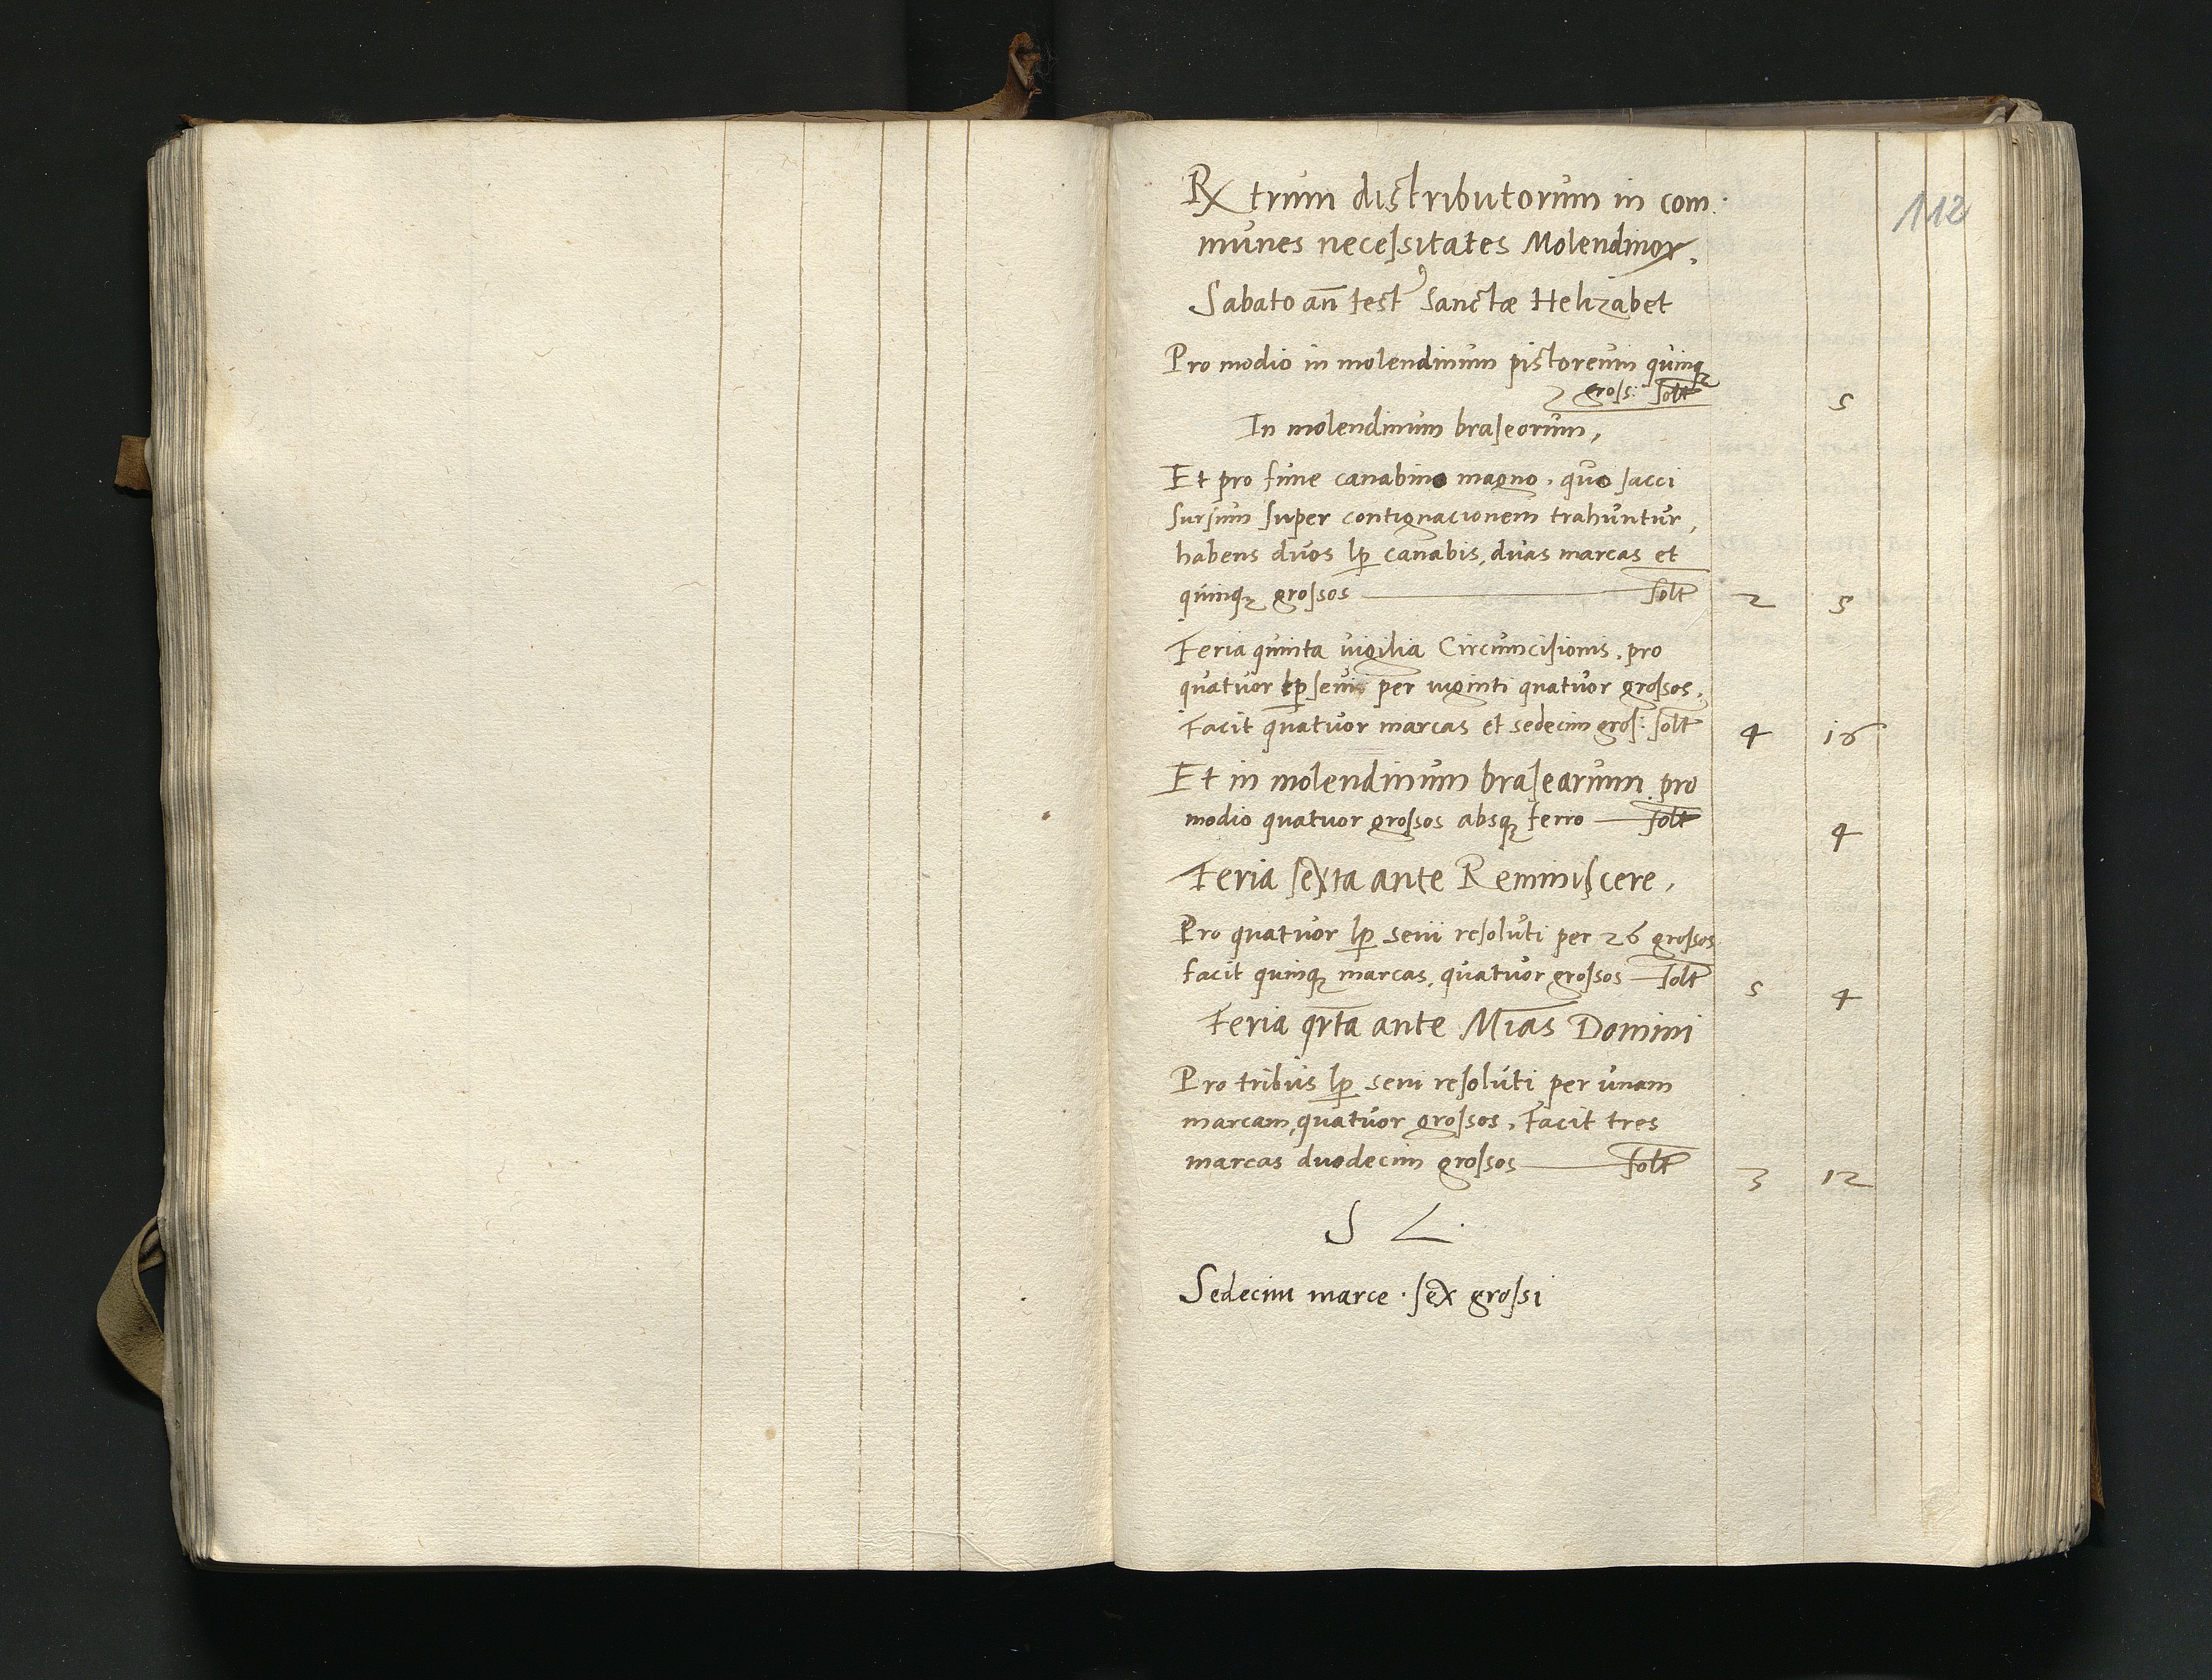 112
Rx trum distributorum in com:
munes neceſsitates Molendinoꝝ.
Sabato an̄ fest⁹ Sanctæ Helizabet
Pro modio in molendinum pistoreum quinqꝫ
groſs: ſolt 5
In molendinum braſeorum,
Et pro fune canabino magno, quo ſacci
ſurſum ſuper contignacionem trahuntur,
habens duos lp canabis, duas marcas et
quinqꝫ groſsos ſolt 2 5
Feria quinta uigilia Circumciſionis, pro
quatuor lp ſevi per uiginti quatuor groſsos,
Facit quatuor marcas et sedecim groſ: ſolt 4 16
Et in molendinum braſearum pro
modio quatuor groſsos absqꝫ ferro ſolt 4
Feria ſexta ante Reminiſcere,
Pro quatuor lp sevii reſoluti per 26 groſsos
facit quinqꝫ marcas, quatuor groſsos ſolt 5 4
Feria qrta ante Mias Domini
Pro tribus lp sevi reſoluti per unam
marcam, quatuor groſsos, Facit tres
marcas duodecim groſsos ſolt 3 12
S L.
Sedecim marce · ſex groſsi